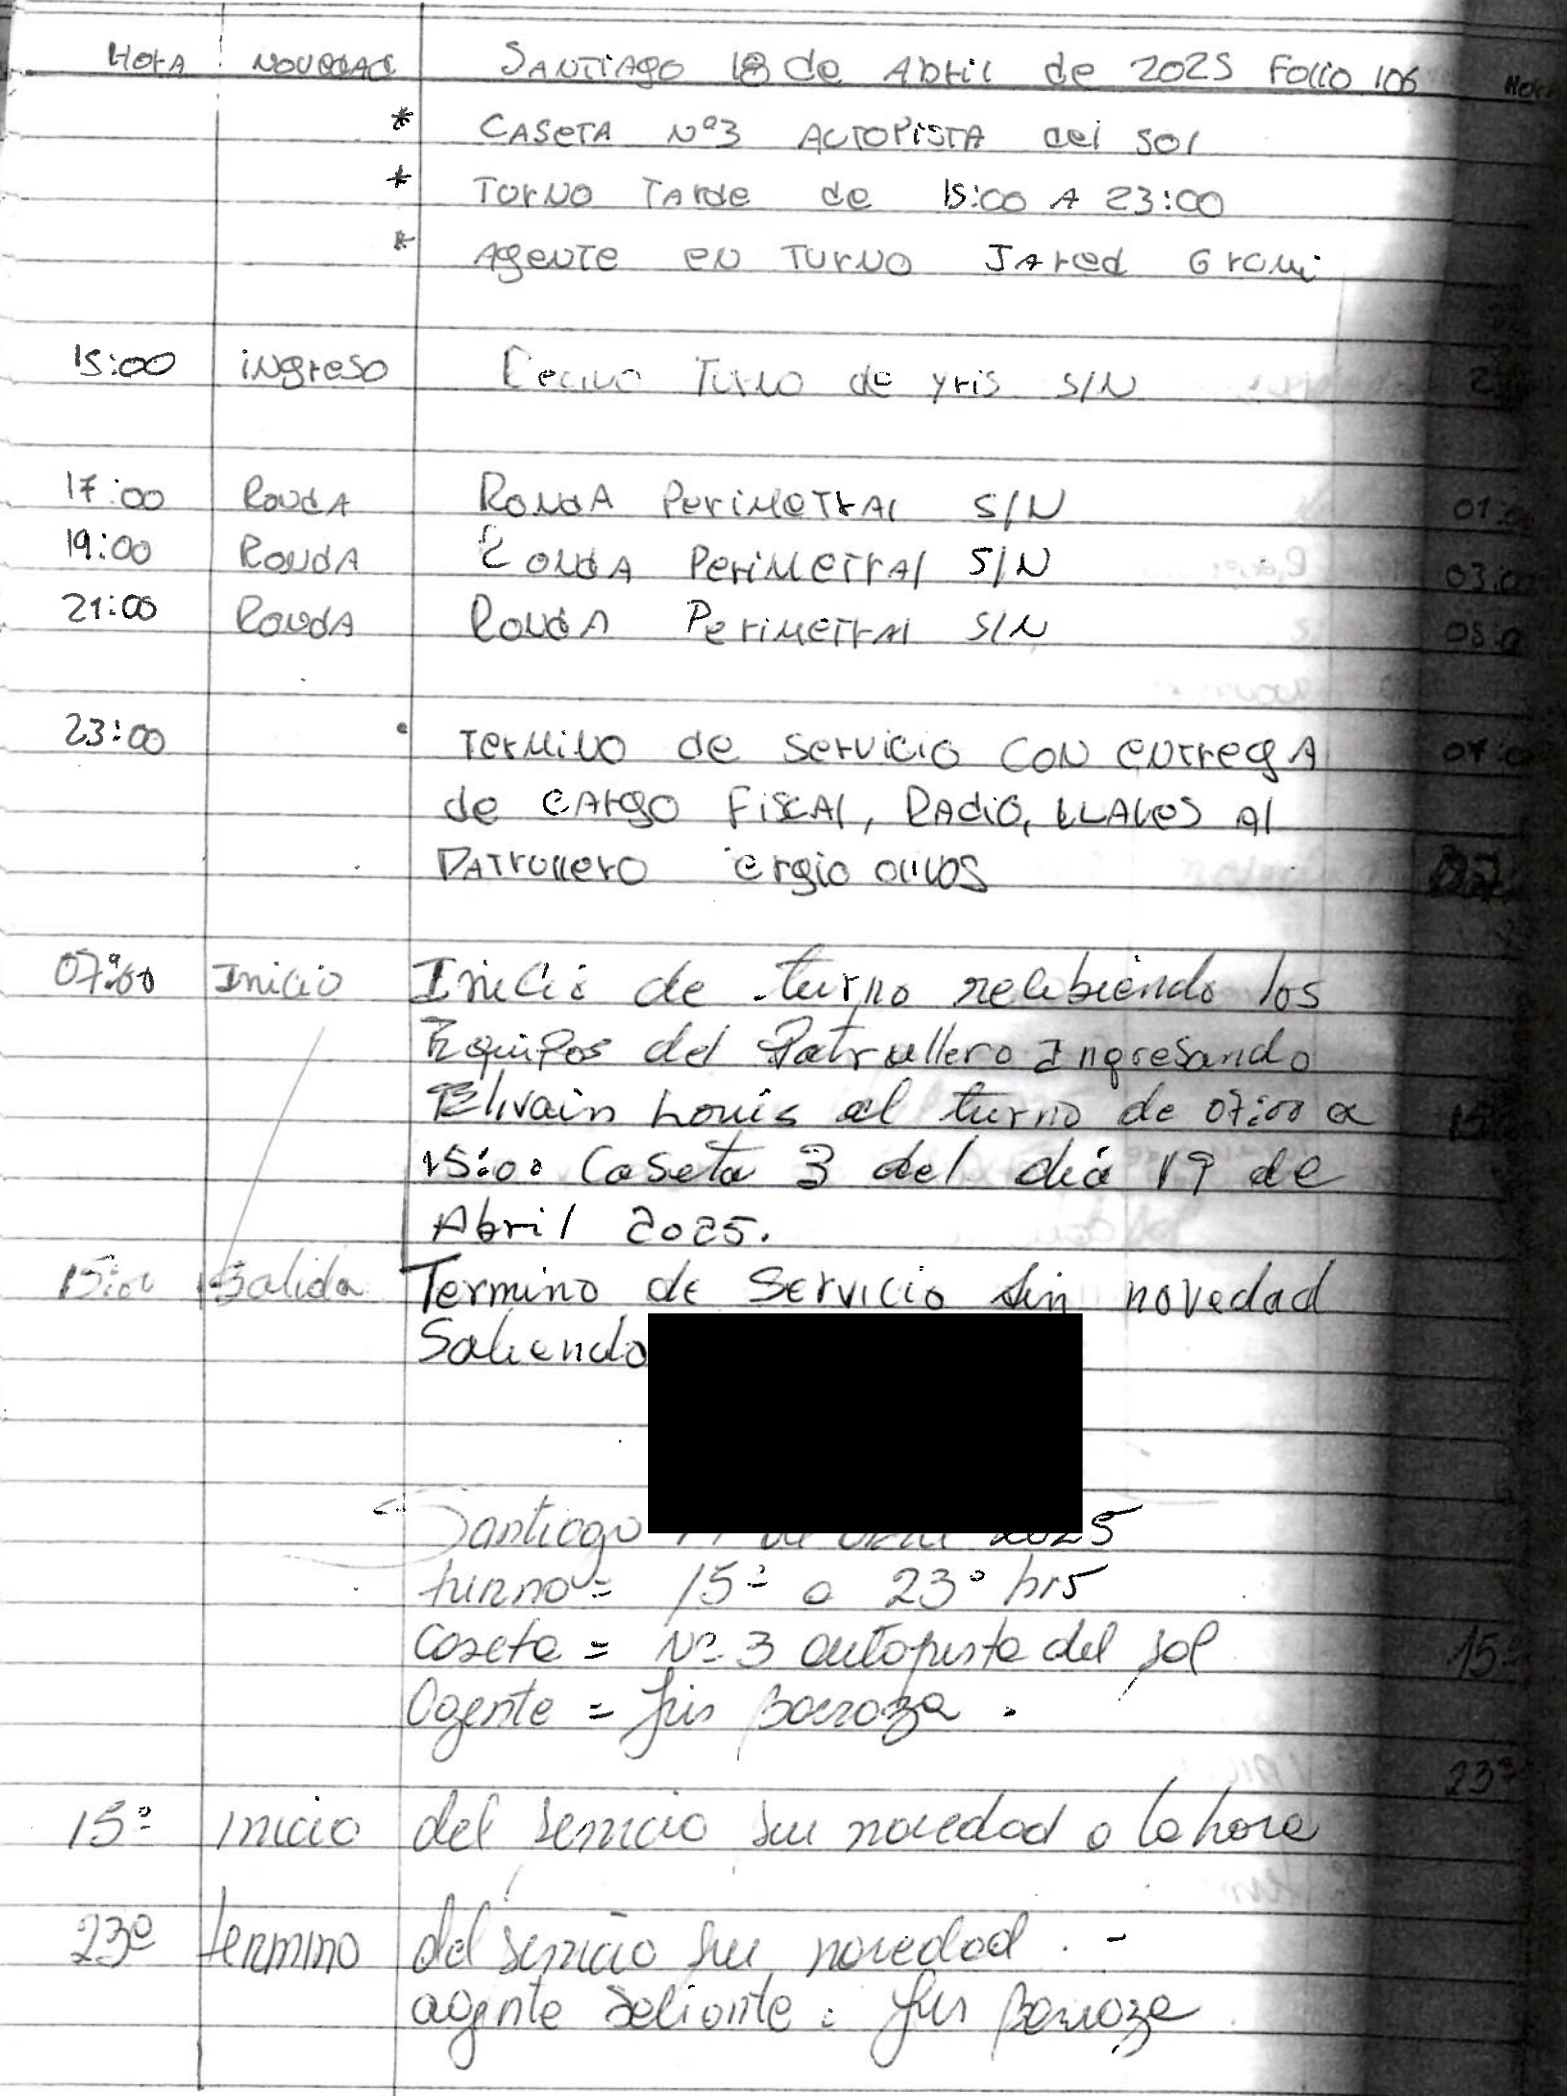 Hora Novedad Santiago 18 de Abril de 2025 Folio 106
* Caseta Nº3 Autopista del Sol
* Turno Tarde de 15:00 a 23:00
* Agente en Turno Jared
15:00 ingreso Turno de Yris S/N
17:00 Ronda Ronda Perimetral S/N
19:00 Ronda Ronda Perimetral S/N
21:00 Ronda Ronda Perimetral S/N
23:00 Termino de servicio con entrega
de cargo Fiscal, Radio, LLaves al
Patrullero ergio
07:00 Inicio Inicio de turno recibiendo los
Equipos del Patrullero Ingresando
Elivain Louis al turno de 07:00 a
15:00 Caseta 3 del dia 19 de
Abril 2025.
15:00 Salida Termino de Servicio sin novedad
Saliendo
Santiago 2025
turno = 15º a 23º hrs
Caseta = Nº 3 autopista del sol
Agente = Yris Barroza.
15º inicio del servicio sin novedad a la hora
23º termino del servicio sin novedad. -
agente saliente: Yris Barroza